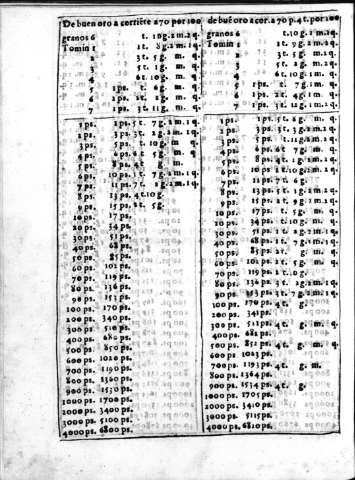 De buen oro a corriēte a 70 por 100
granos 6 t. 10 g. 2 m. 2 q.
Tomin 1 1 t. 8 g. 2 m. 1 q.
2 3 t. 5 g. m. q.
3 5 t. 1 g. m. q.
4 6 t. 10 g. m. q.
5 1 ps. t. 6 g. m. q.
6 1 ps. 2 t. 2 g. m. q.
7 1 ps. 3 t. 11 g. m. q.
1 ps. 1 ps. 5 t. 7 g. 2 m. 1 q.
2 ps. 3 ps. 3 t. 2 g. 1 m. q.
3 ps. 5 ps. t. 10 g. m q.
4 ps. 6 ps. 6 t. 5 g. m. q.
5 ps. 8 ps. 4 t. g. m. q.
6 ps. 10 ps. 1 t. 7 g. 2 m. 1 q.
7 ps. 11 ps. 7 t. 2 g. 1 m. q.
8 ps. 13 ps. 4 t. 10 g.
9 ps. 15 ps. t. 5 g.
10 ps. 17 ps.
20 ps. 34 ps.
30 ps. 51 ps.
40 ps. 68 ps.
50 ps. 85 ps.
60 ps. 102 ps.
70 ps. 119 ps.
80 ps. 136 ps.
90 ps. 153 ps.
100 ps. 170 ps.
200 ps. 340 ps.
300 ps. 510 ps.
400 ps. 680 ps.
500 ps. 850 ps.
600 ps. 1020 ps.
700 ps. 1190 ps.
800 ps. 1360 ps.
900 ps. 1530 ps.
1000 ps. 1700 ps.
2000 ps. 3400 ps.
3000 ps. 5100 ps.
4000 ps. 6800 ps.
de buē oro a cor. a 70 p. 4 t. por 100
granos 6 t. 10 g. 2 m. 2 q.
Tomin 1 1 t. 8 g. 2 m. 1 q.
2 3 t. 5 g. m. q.
3 5 t. 1 g. m. q.
4 6 t. 10 g. 1 m. q.
5 1 ps. t. 7 g. m. q.
6 1 ps. 2 t. 3 g. m. q.
7 1 ps. 3 t. 11 g. 1 m. q.
1 ps. 1 ps. 5 t. 8 g. m. q.
2 ps. 3 ps. 3 t. 3 g. 2 m. 2 q.
3 ps. 5 ps. t. 11 g. 2 m. q.
4 ps. 6 ps. 6 t. 7 g. m. q.
5 ps. 8 ps. 4 t. 2 g. 1 m. 2 q.
6 ps. 10 ps. 2 t. 10 g. 2 m. q.
7 ps. 11 ps. 7 t. 6 g.
8 ps. 13 ps. 5 t. 1 g. 2 m. q.
9 ps. 15 ps. 2 t. 9 g. m. q.
10 ps. 17 ps. t. 5 g. m. q.
20 ps. 34 ps. t. 10 g. m. q.
30 ps. 51 ps. 1 t. 2 g. 1 m. 2 q.
40 ps. 68 ps. 1 t. 7 g. 1 m. 1 q.
50 ps. 85 ps. 2 t. g.
60 ps. 102 ps. 2 t. g. m. q.
70 ps. 119 ps. 2 t. 10 g.
80 ps. 136 ps. 3 t. 2 g. 2 m. q.
90 ps. 153 ps. 3 t. 7 g. 2 m. 1 q.
100 ps. 170 ps. 4 t. g.
200 ps. 341 ps.
300 ps. 511 ps. 4 t. g. m. q.
400 ps. 682 ps.
500 ps. 852 ps. 4 t. g. m. q.
600 ps. 1023 ps.
700 ps. 1193 ps. 4 t. g. m.
800 ps. 1364 ps.
900 ps. 1534 ps. 4 t. g.
1000 ps. 1705 ps.
2000 ps. 3410 ps.
3000 ps. 5115 ps.
4000 ps. 6820 ps.